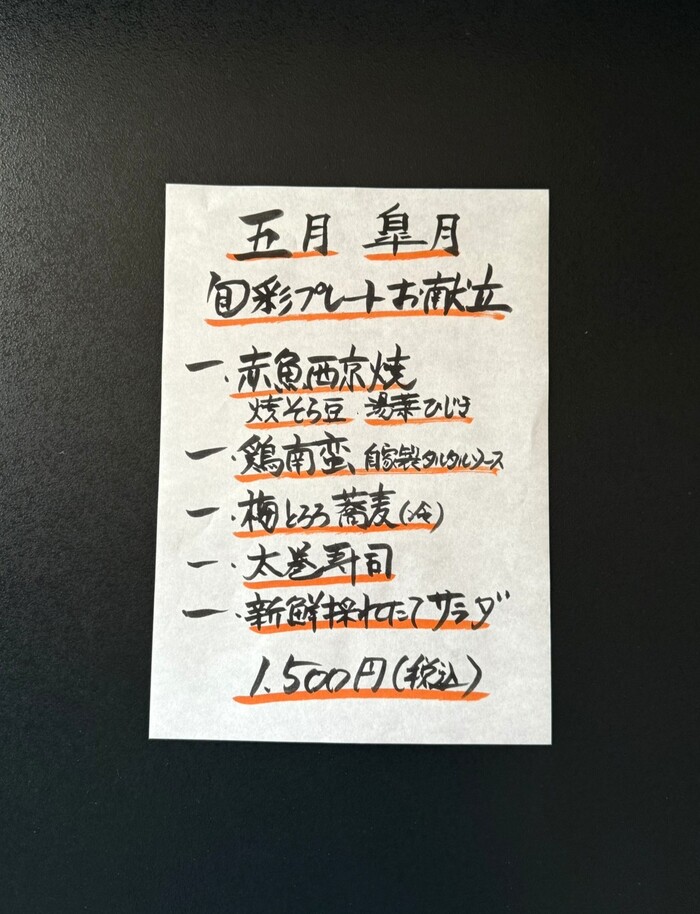 五月 皐月
旬彩プレートお献立
一.赤魚西京焼
焼そら豆 湯葉ひじき
一.鶏南蛮、自家製タルタルソース
一.梅とろろ蕎麦(冷)
一.太巻寿司
一.新鮮採れたてサラダ
1.500円(税込)